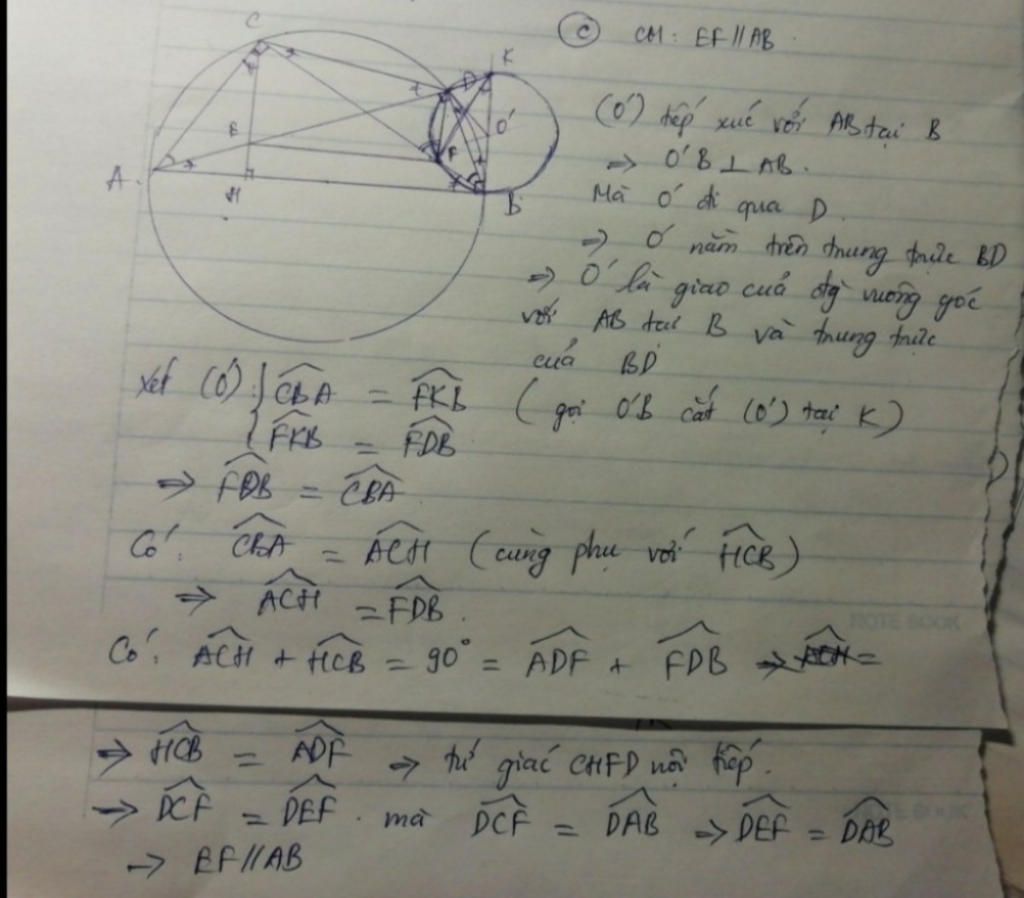 C
A
E
H
D
K
O'
F
B
(c) CM: EF // AB.
(O') tiếp xúc với AB tại B
=> O'B ⊥ AB.
Mà O' đi qua D.
=> O' nằm trên trung trực BD
=> O' là giao của đg vuông góc
với AB tại B và trung trực
của BD
Xét (O'): { \widehat{CBA} = \widehat{FKB} (gọi O'B cắt (O') tại K)
\widehat{FKB} = \widehat{FDB}
=> \widehat{FDB} = \widehat{CBA}.
Có: \widehat{CBA} = \widehat{ACH} (cùng phụ với \widehat{HCB})
=> \widehat{ACH} = \widehat{FDB}.
Có: \widehat{ACH} + \widehat{HCB} = 90° = \widehat{ADF} + \widehat{FDB} => \widehat{ACH} =
=> \widehat{HCB} = \widehat{ADF} => tứ giác CHFD nội tiếp.
=> \widehat{DCF} = \widehat{DEF}. mà \widehat{DCF} = \widehat{DAB} => \widehat{DEF} = \widehat{DAB}
=> EF // AB
NOTE BOOK